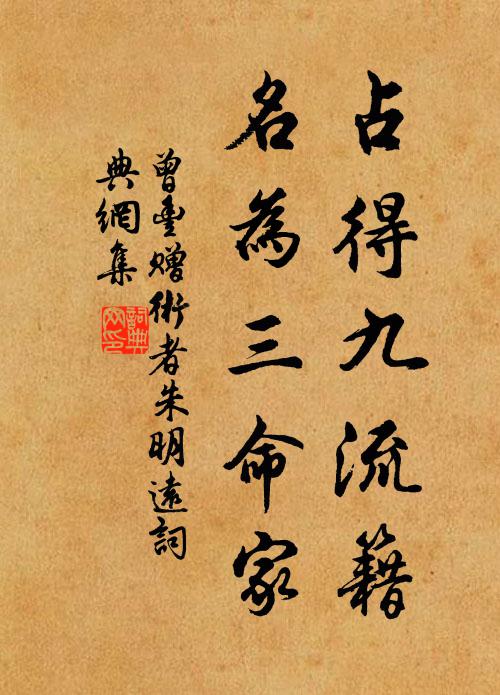 占得九流籍
名為三命家
曾豐贈術者朱明遠詞
典網集
詞典網印